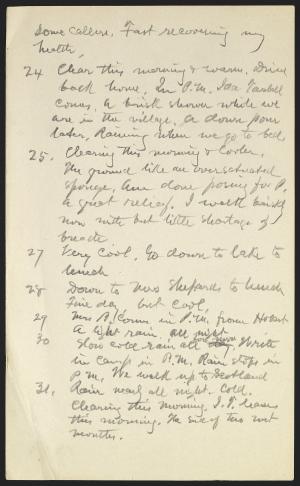 Some callers, Fast recovering my
health,
24 Clear this morning & warm. Drive
back home, In P.M. Ida Tarbell
comes, A brisk shower while we
are in the village. A down pour
later, Raining when we go to bed
25. Clearing this morning & cooler.
The ground like an over saturated
sponge, Am done posing for P.
a great relief. I walk briskly
now with but little shortage of
breath
27 Very cool. Go down to lake to
lunch
28 Down to Mrs Shepards to lunch
Fine day but cool,
29 Mrs B. comes in P.M. from Hobart
A light rain, all night
30 Slow cold rain all fore-noon. Write
in camp in P.M. Rain stops in
P.M. We walk up to Scotland
31. Rain nearly all night. Cold.
Clearing this morning. I.T. leaves
this morning. The end of two wet
months.